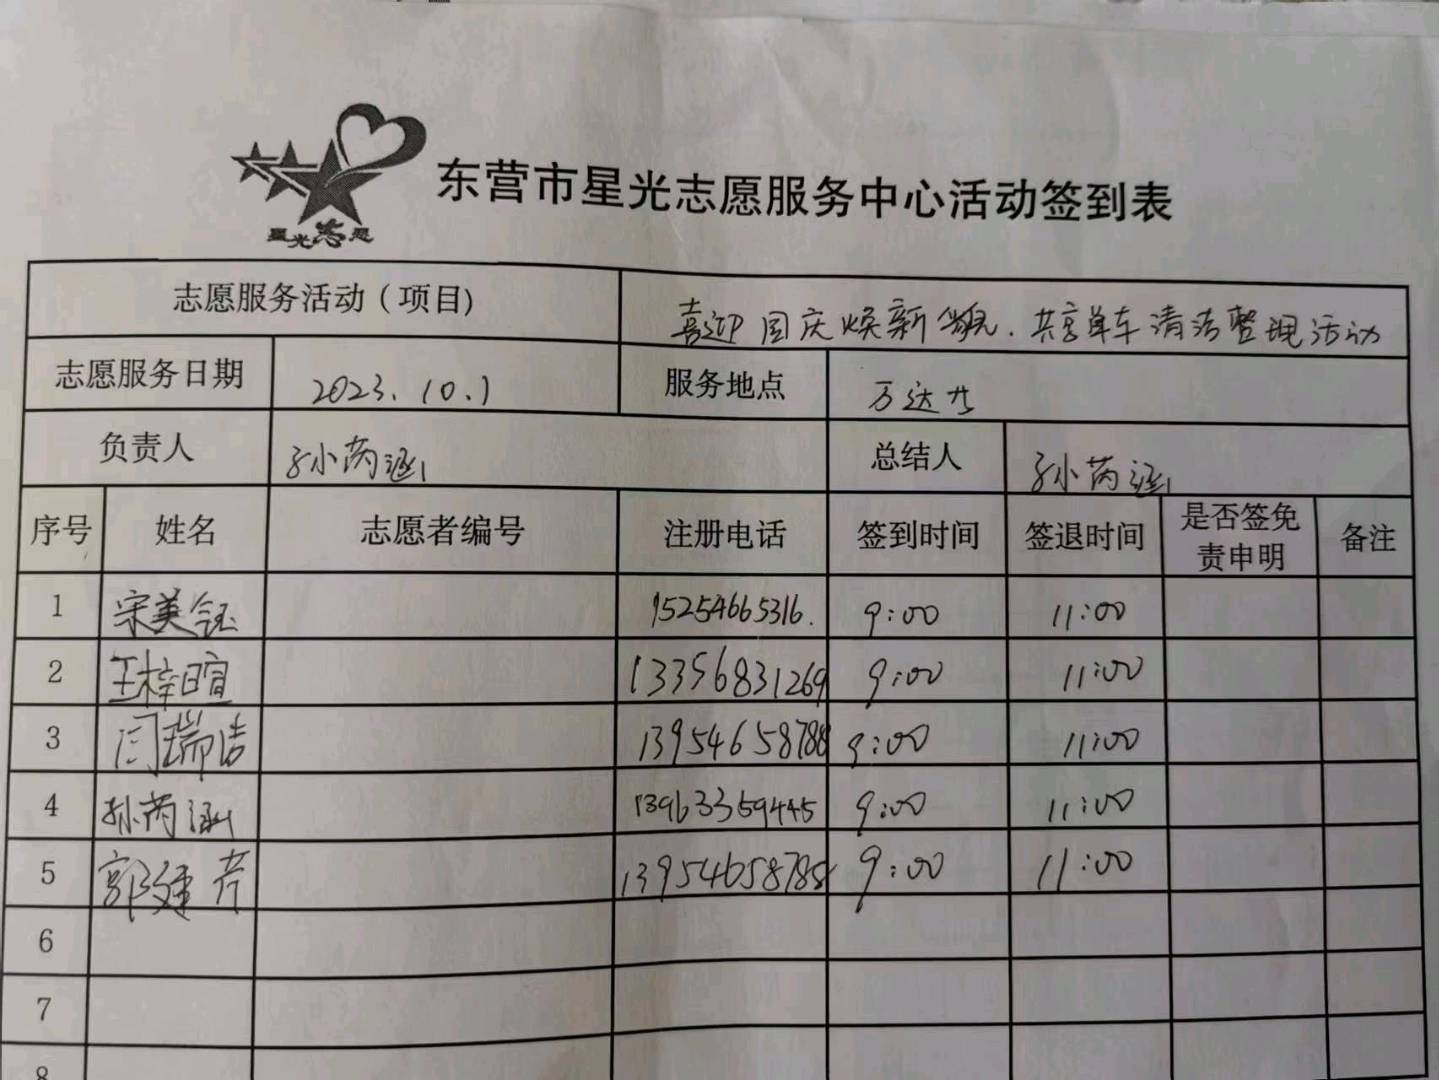 星光志愿
东营市星光志愿服务中心活动签到表
志愿服务活动（项目） 喜迎国庆焕新貌.共享单车清洁整理活动
志愿服务日期 2023.10.1 服务地点 万达
负责人 孙芮涵 总结人 孙芮涵
序号 姓名 志愿者编号 注册电话 签到时间 签退时间 是否签免责申明 备注
1 宋美钰 15254665316. 9:00 11:00
2 王梓暄 13356831269 9:00 11:00
3 闫瑞洁 13954658788 9:00 11:00
4 孙芮涵 13963359445 9:00 11:00
5 郭建芹 13954658788 9:00 11:00
6
7
8